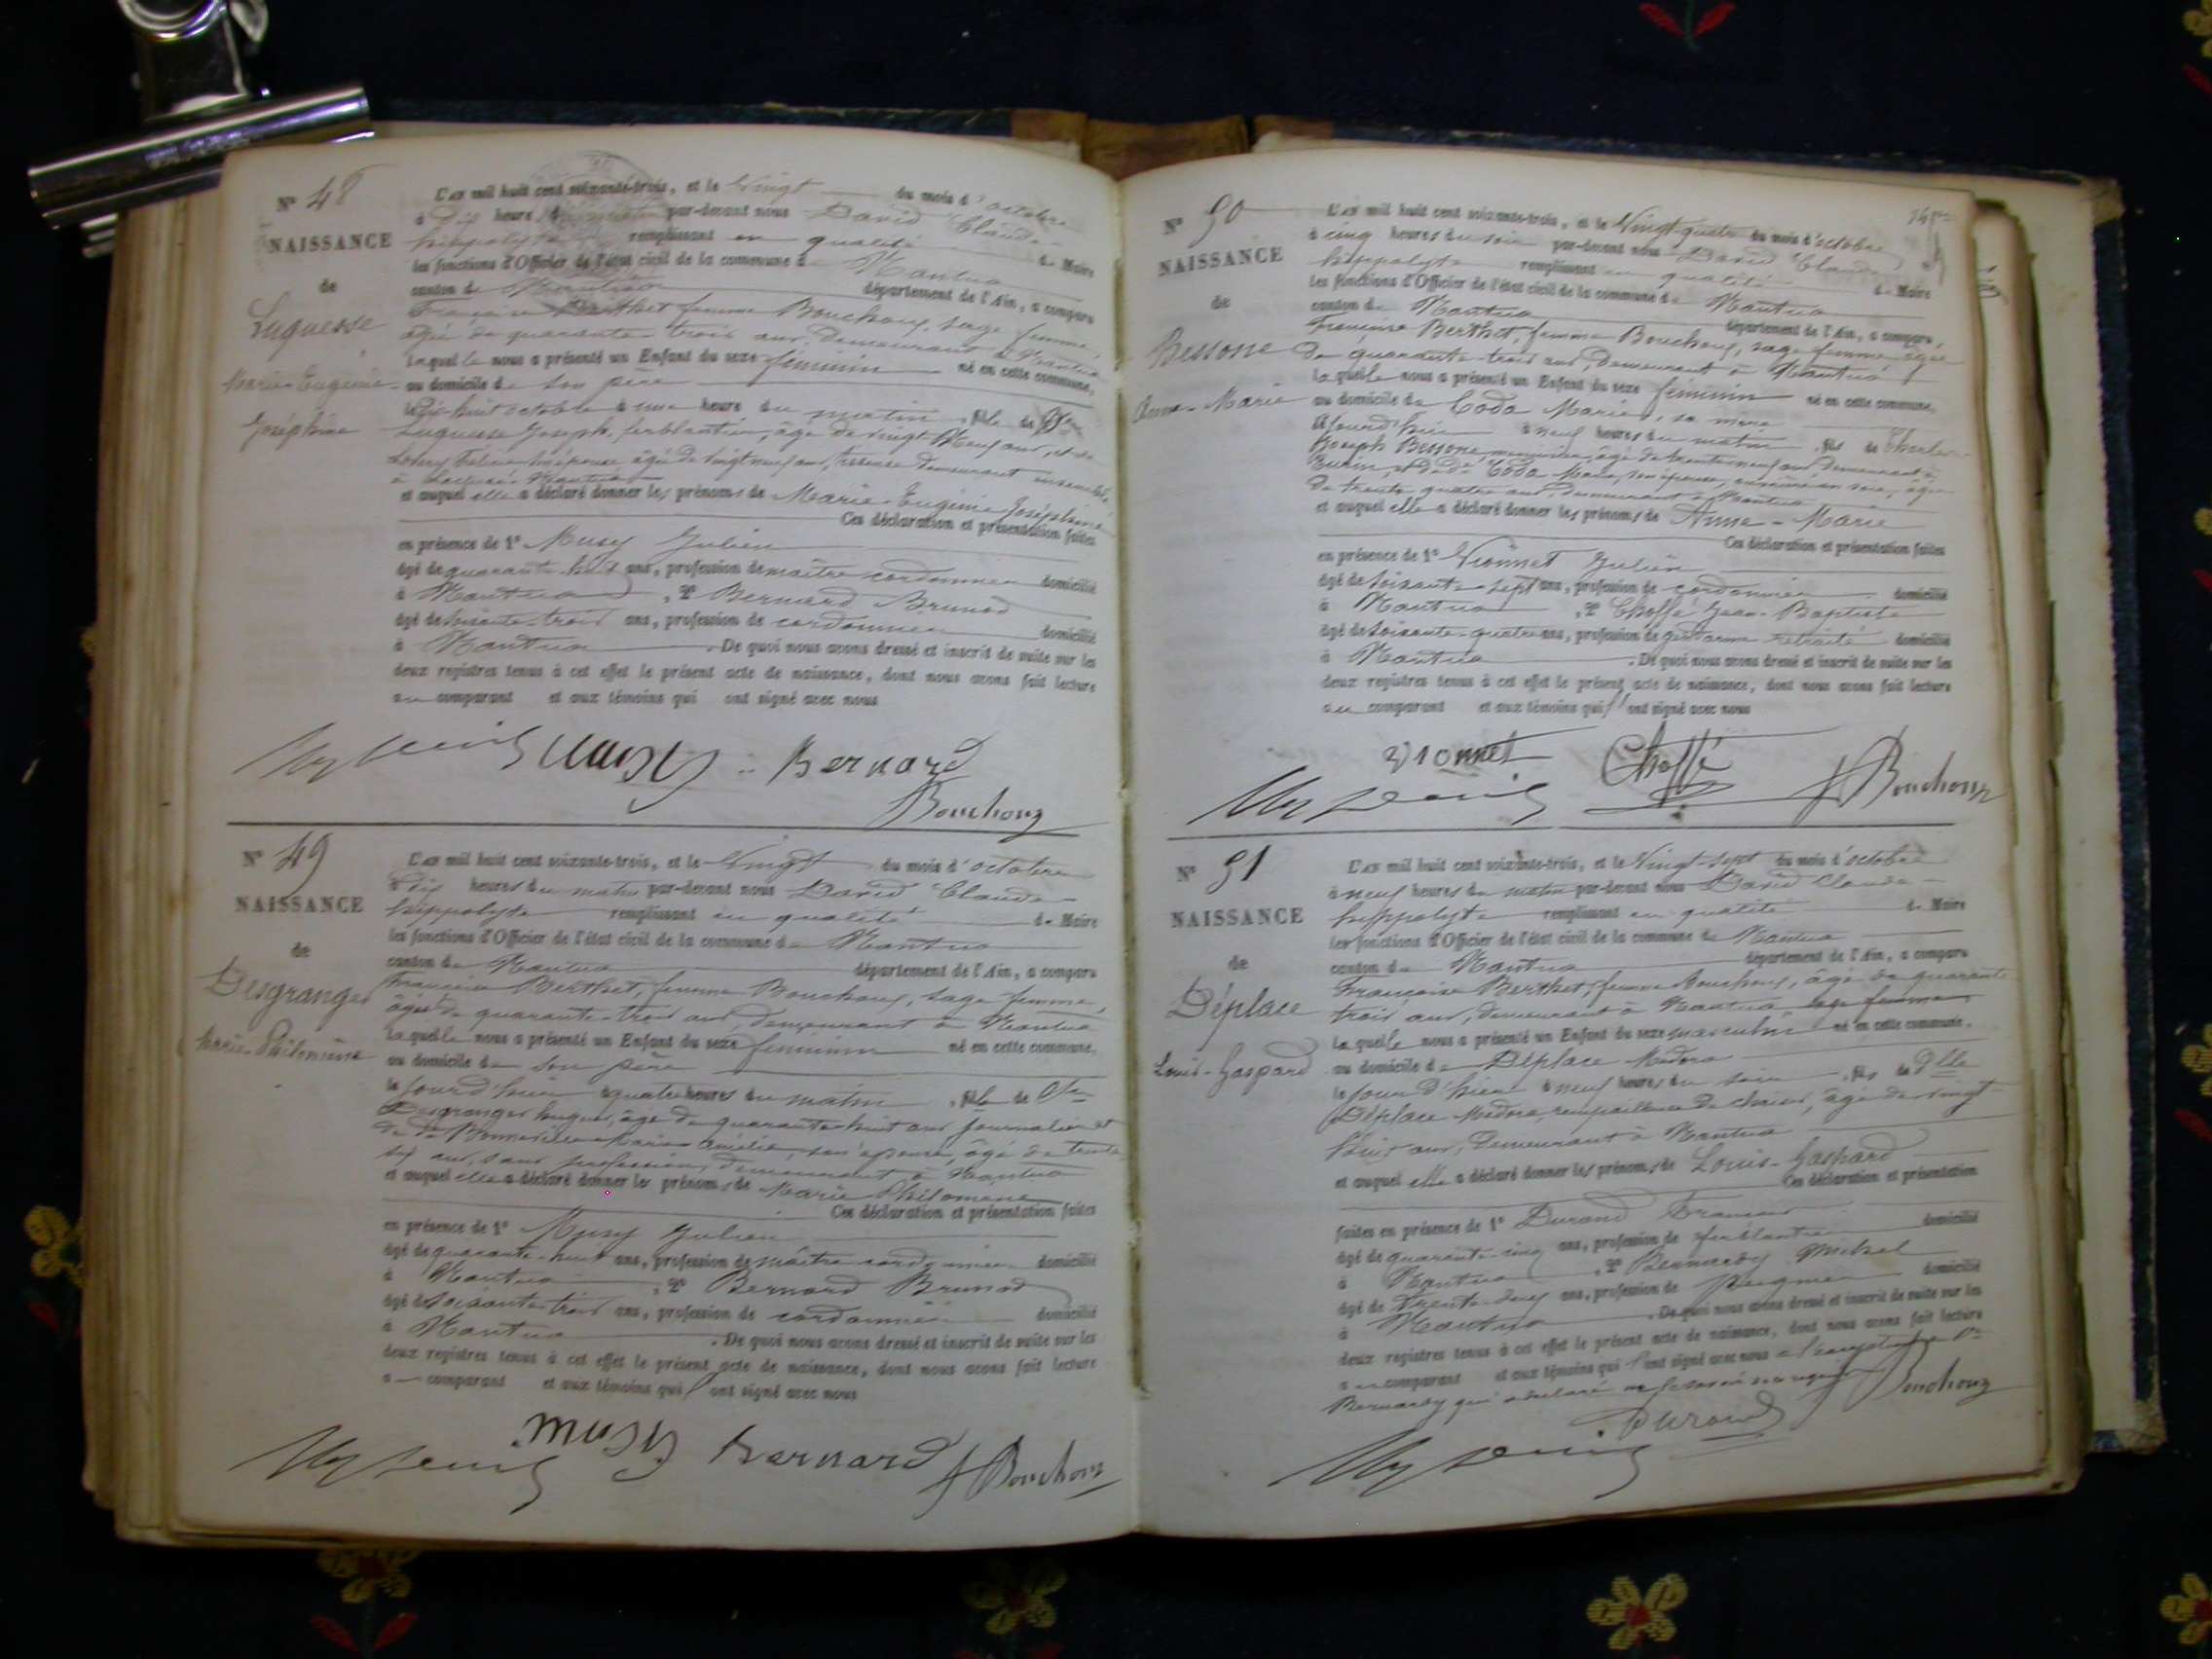 Nº 48
NAISSANCE
de
Luguesse
Marie-Eugénie
Joséphine
L'an mil huit cent soixante-trois, et le Vingt du mois d'octobre
à Dix heures du matin par-devant nous David Claude
hippolyte remplissant en qualité de Maire
les fonctions d'Officier de l'état civil de la commune de Nantua
canton de Nantua département de l'Ain, a comparu
Françoise Berthet femme Bouchoux, sage femme,
âgée de quarante-trois ans, demeurant à Nantua
laquelle nous a présenté un Enfant du sexe féminin né en cette commune,
au domicile de son père
le Dix-huit octobre à une heure du matin, fille de Sr
Luguesse Joseph, ferblantier, âgé de vingt-neuf ans, et de
son épouse, âgée de vingt neuf ans, demeurant ensemble
à Nantua
et auquel elle a déclaré donner les prénoms de Marie-Eugénie Joséphine
Ces déclaration et présentation faites
en présence de 1º Musy Julien
âgé de quarante-huit ans, profession de maître cordonnier domicilié
à Nantua, 2º Bernard Brunod
âgé de soixante-trois ans, profession de cordonnier domicilié
à Nantua. De quoi nous avons dressé et inscrit de suite sur les
deux registres tenus à cet effet le présent acte de naissance, dont nous avons fait lecture
au comparant et aux témoins qui ont signé avec nous
Musy Bernard
Bouchoux
Nº 49
NAISSANCE
de
Desgranges
Marie-Philomène
L'an mil huit cent soixante-trois, et le Vingt du mois d'octobre
à Dix heures du matin par-devant nous David Claude
hippolyte remplissant en qualité de Maire
les fonctions d'Officier de l'état civil de la commune de Nantua
canton de Nantua département de l'Ain, a comparu
Françoise Berthet, femme Bouchoux, sage femme,
âgée de quarante-trois ans, demeurant à Nantua
laquelle nous a présenté un Enfant du sexe féminin né en cette commune,
au domicile de son père
le jour d'hier à quatre heures du matin, fille de Sr
Desgranges hugues, âgé de quarante-huit ans journalier et
de de Marie Amélie, son épouse, âgée de trente
six ans, sans profession, demeurant à Nantua
et auquel elle a déclaré donner les prénoms de Marie Philomène
Ces déclaration et présentation faites
en présence de 1º Musy Julien
âgé de quarante-huit ans, profession de maître cordonnier domicilié
à Nantua, 2º Bernard Brunod
âgé de soixante-trois ans, profession de cordonnier domicilié
à Nantua. De quoi nous avons dressé et inscrit de suite sur les
deux registres tenus à cet effet le présent acte de naissance, dont nous avons fait lecture
au comparant et aux témoins qui ont signé avec nous
musy Bernard f Bouchoux
Nº 50
NAISSANCE
de
Bessone
Anne-Marie
L'an mil huit cent soixante-trois, et le Vingt quatre du mois d'octobre
à cinq heures du soir par-devant nous David Claude
hippolyte remplissant en qualité de Maire
les fonctions d'Officier de l'état civil de la commune de Nantua
canton de Nantua département de l'Ain, a comparu,
Françoise Berthet, femme Bouchoux, sage femme âgée
de quarante-trois ans, demeurant à Nantua
laquelle nous a présenté un Enfant du sexe féminin né en cette commune,
au domicile de Coda Marie, sa mère
le jourd'hier à neuf heures du matin, fils de Charles
Joseph Bessone, âgé de trente-neuf ans demeurant à
Turin, et de de Coda Marie, son épouse, ouvrière en soie, âgée
de trente quatre ans, demeurant à Nantua
et auquel elle a déclaré donner les prénoms de Anne-Marie
Ces déclaration et présentation faites
en présence de 1º Vionnet Julien
âgé de soixante-sept ans, profession de cordonnier domicilié
à Nantua, 2º Choffé Jean-Baptiste
âgé de soixante-quatre ans, profession de gendarme retraité domicilié
à Nantua. De quoi nous avons dressé et inscrit de suite sur les
deux registres tenus à cet effet le présent acte de naissance, dont nous avons fait lecture
au comparant et aux témoins qui ont signé avec nous
Vionnet Choffé f Bouchoux
Nº 51
NAISSANCE
de
Déplace
Louis-Gaspard
L'an mil huit cent soixante-trois, et le Vingt-sept du mois d'octobre
à neuf heures du matin par-devant nous David Claude
hippolyte remplissant en qualité de Maire
les fonctions d'Officier de l'état civil de la commune de Nantua
canton de Nantua département de l'Ain, a comparu
Françoise Berthet, femme Bouchoux, âgée de quarante
trois ans, demeurant à Nantua sage femme
laquelle nous a présenté un Enfant du sexe masculin né en cette commune,
au domicile de Déplace Médora
le jour d'hier à neuf heures du soir, fils de Dlle
Déplace Médora, rempailleuse de chaises, âgée de vingt
huit ans, demeurant à Nantua
et auquel elle a déclaré donner les prénoms de Louis-Gaspard
Ces déclaration et présentation
faites en présence de 1º Durand François domicilié
âgé de quarante-cinq ans, profession de ferblantier
à Nantua, 2º Bernardy Michel
âgé de Trente-deux ans, profession de peigneur domicilié
à Nantua. De quoi nous avons dressé et inscrit de suite sur les
deux registres tenus à cet effet le présent acte de naissance, dont nous avons fait lecture
au comparant et aux témoins qui ont signé avec nous à l'exception de Sr
Bernardy qui a déclaré ne le savoir
f Bouchoux
Durand